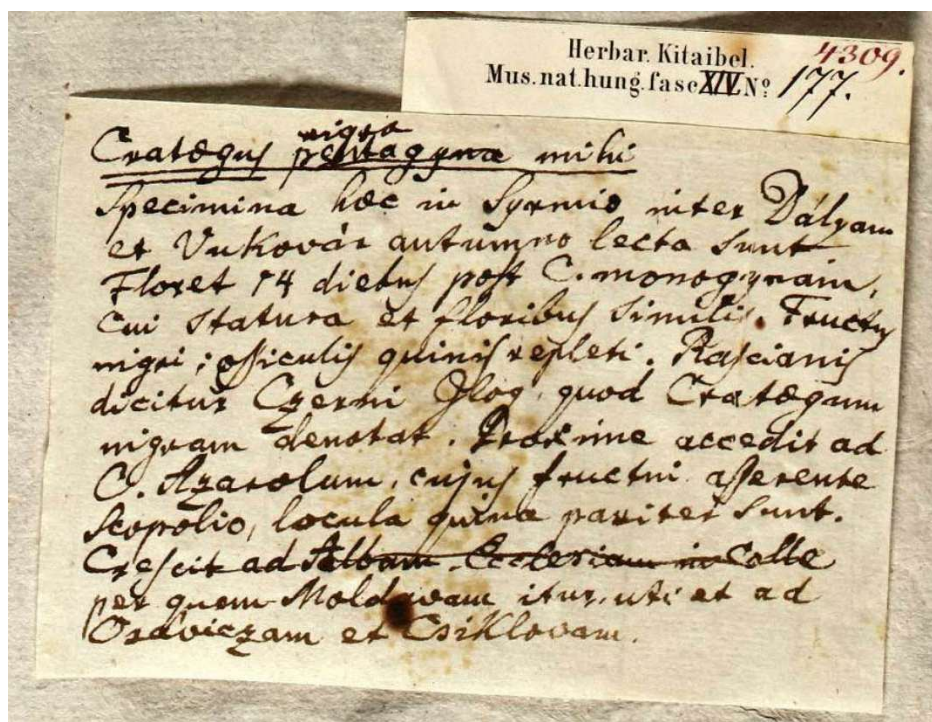 Herbar. Kitaibel. 4309.
Mus. nat. hung. fasc XIV. Nº 177.
nigra
Cratægus pentagyna mihi
Specimina hæc in Syrmio inter Dályam
et Vukovár autumno lecta sunt
Floret 14 diebus post C. monogynam,
cui statura et floribus similis. Fructus
nigri; ossiculis quinis repleti. Rascianis
dicitur Czerni Glog, quod Cratægum
nigram denotat. Proxime accedit ad
C. Azarolum, cujus fructui asserente
Scopolio, locula quina pariter sunt.
Crescit ad Albam Ecclesiam in Colle
per quem Moldavam itur, uti et ad
Oraviczam et Csiklovam.